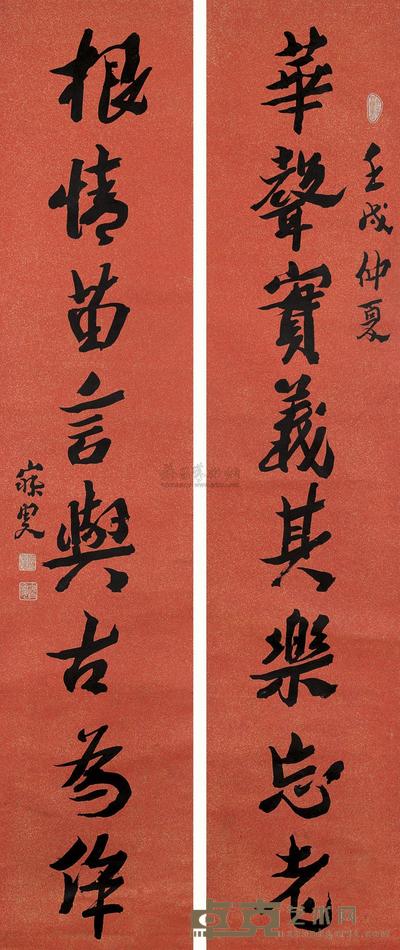 壬戌仲夏
華聲實義其樂忘老
根情苗言與古為侔
寐叟
卓克艺术网